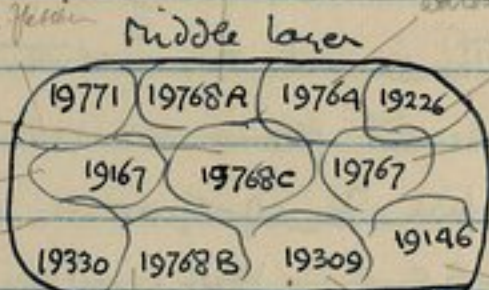 Middle layer
19771 19768A 19764 19226
19167 19768C 19767
19330 19768B 19309 19146